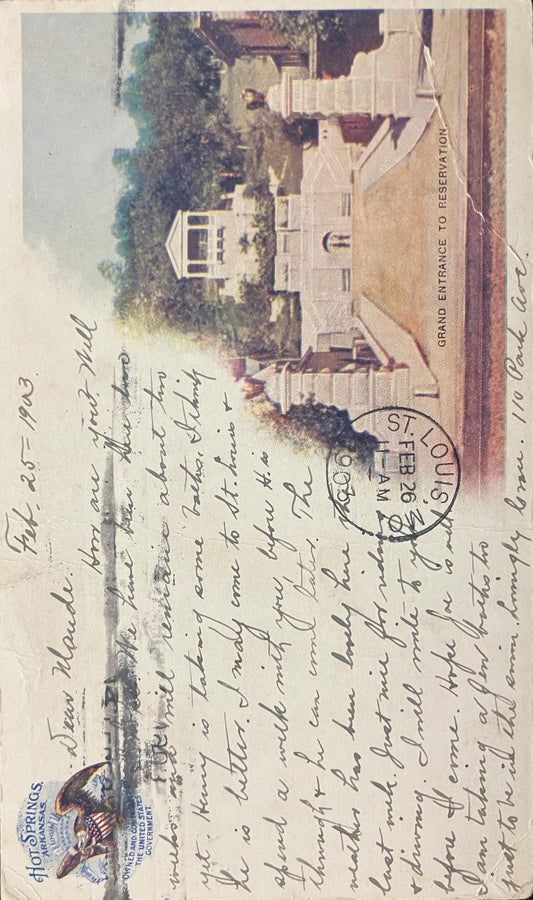 HOT SPRINGS,
ARKANSAS.
OWNED AND
THE UNITED STATES
GOVERNMENT.
GRAND ENTRANCE TO RESERVATION.
ST. LOUIS, MO
FEB 26
11-AM
Feb. 25 = 1903.
Dear Maude.
How are you? Will
We have been here two
weeks will remain about two
yet. Henry is taking some baths. I think
he is better. I may come to St. Louis &
spend a week with you before H. is
through & he can come later. The
weather has been lovely here the
last week. Just nice for riding
& driving. I will write to you
before I come. Hope Joe is well
I am taking a few baths too
just to be in the swim. Lovingly 110 Park Ave.